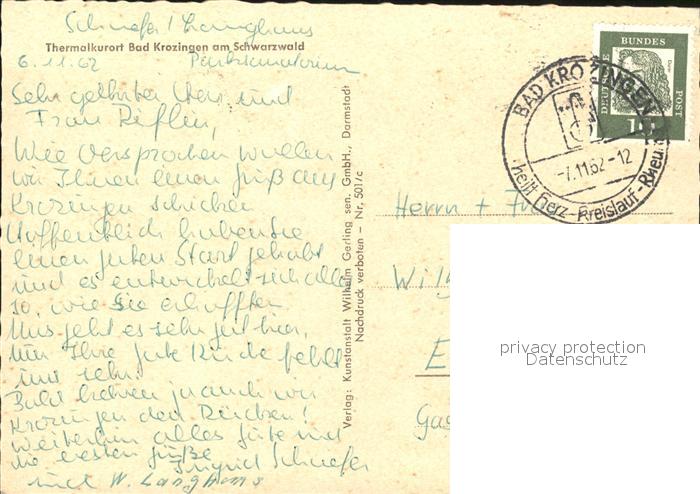 Schaefer / Langhans
Thermalkurort Bad Krozingen am Schwarzwald
6.11.62 Parksanatorium
Sehr geehrter Herr und
Frau
Wie versprochen wollen
wir Ihnen einen Gruß aus
Krozingen schicken
Hoffentlich haben Sie
einen guten Start gehabt
und es entwickelt sich alles
so, wie Sie erhofften
Uns geht es sehr gut hier,
nur Ihre gute Küche fehlt
uns sehr.
Bald kehren ja auch wir
Krozingen den Rücken!
Weiterhin alles Gute und
die besten Grüße
Ingrid Schaefer
und W. Langhans
Verlag: Kunstanstalt Wilhelm Gerling sen. GmbH., Darmstadt
Nachdruck verboten - Nr. 501/c
DEUTSCHE
BUNDES
POST
Dürer
10
BAD KROZINGEN
-7.11.62-12
heilt Herz-Kreislauf-Rheu
Herrn + Fr
Wilh
E
Gas
privacy protection
Datenschutz